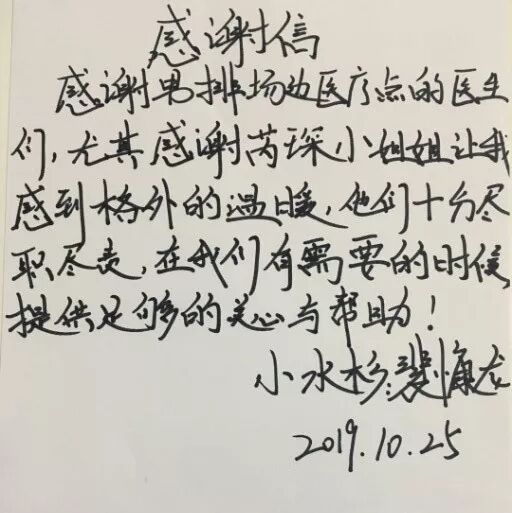 感谢信
感谢男排场边医疗点的医生
们,尤其感谢芮琛小姐姐让我
感到格外的温暖,他们十分尽
职尽责,在我们有需要的时候,
提供足够的关心与帮助!
小水杉:裴慷龙
2019.10.25